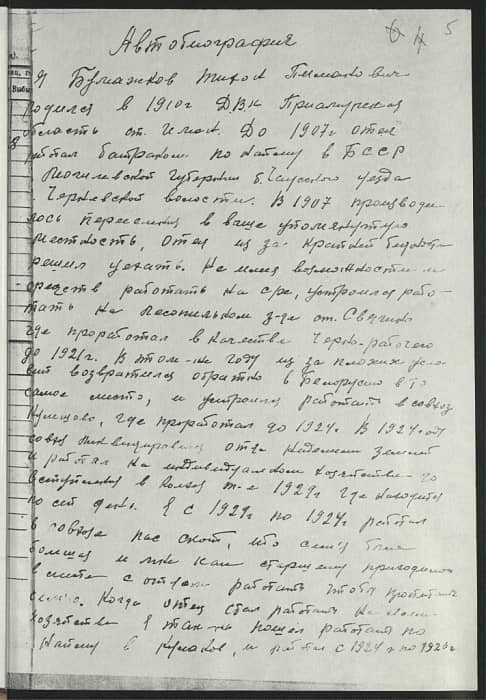 4 5
Автобиография
Я Бумажков Тихон Пиманович
родился в 1910г Д.В.К Приамурская
область ст. Иман. До 1907г отец
работал батраком по найму в БССР
Могилевской губернии б. Чаусского уезда
волости. В 1907 производи-
лось переселение в выше упомянутую
местность, отец из за крайней бедности
решил уехать. Не имея возможности и
средств работать на с/х, устроился рабо-
тать на лесопильном з-де ст. Свягино
где проработал в качестве черно-рабочего
до 1921г. В том-же году из за плохих усло-
вий возвратился обратно в Белоруссию в то
самое место, и устроился работать в совхоз
где проработал до 1924г. В 1924 году
совхоз ликвидировали отца наделили землей
и работал на индивидуальном хозяйстве до
вступления в колхоз т-е 1929г где находится
по сей день. Я с 1921г по 1924г работал
в совхозе пас скот, ибо семья была
большая и мне как старшему приходилось
вместе с отцом работать чтобы прокормить
семью. Когда отец стал работать на своем
хозяйстве я так-же пошел работать по
найму к кулаков, и работал с 1924г по 1926г